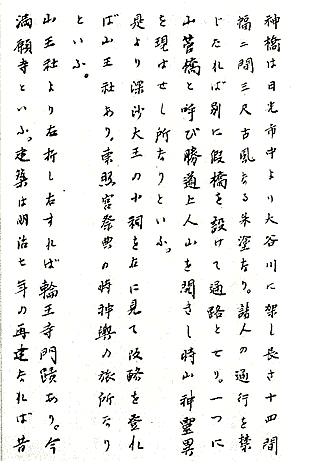 神橋は日光市中より大谷川に架し長さ十四間
福二間三尺古風なる朱塗なり。諸人の通行を禁
じたれば別に假橋を設けて通路とせり。一つに
山菅橋と呼び勝道上人山を開きし時山神靈異
を現はせし所なりといふ。
是より深沙大王の小祠を左に見て坂路を登れ
ば山王社あり。東照宮祭典の時神輿の旅所なり
といふ。
山王社より右折し右すれば輪王寺門蹟あり。今
満願寺といふ。建築は明治七年の再建なれば昔